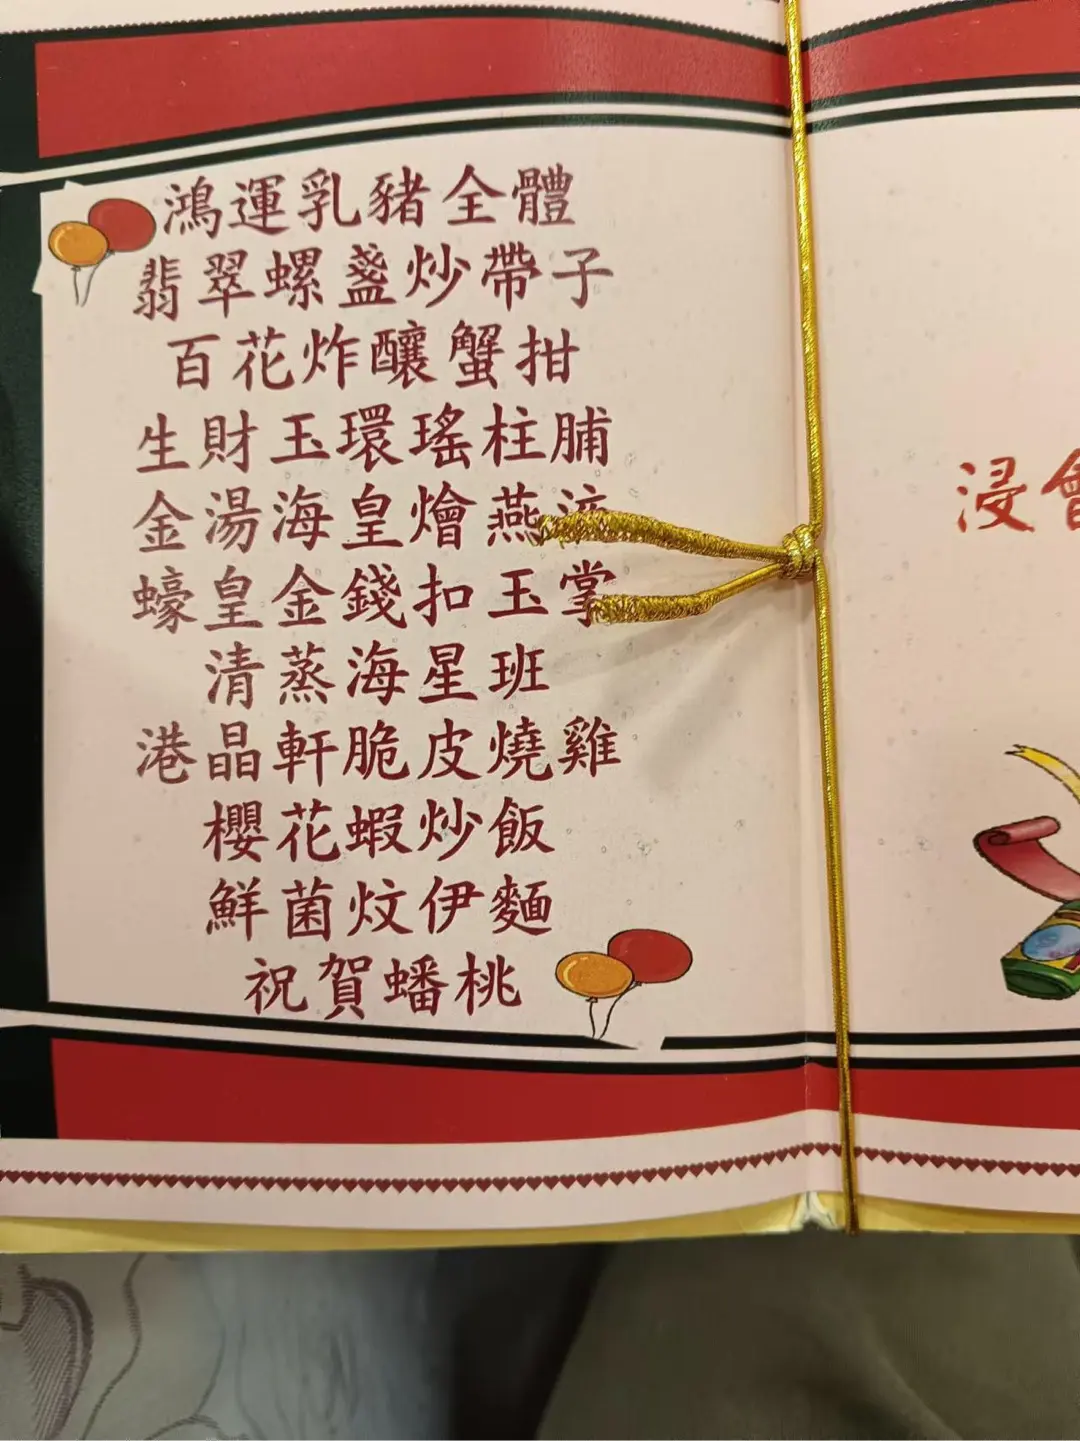 鴻運乳豬全體
翡翠螺盞炒帶子
百花炸釀蟹拑
生財玉環瑤柱脯
金湯海皇燴燕
蠔皇金錢扣玉掌
清蒸海星班
港晶軒脆皮燒雞
櫻花蝦炒飯
鮮菌炆伊麵
祝賀蟠桃
浸會